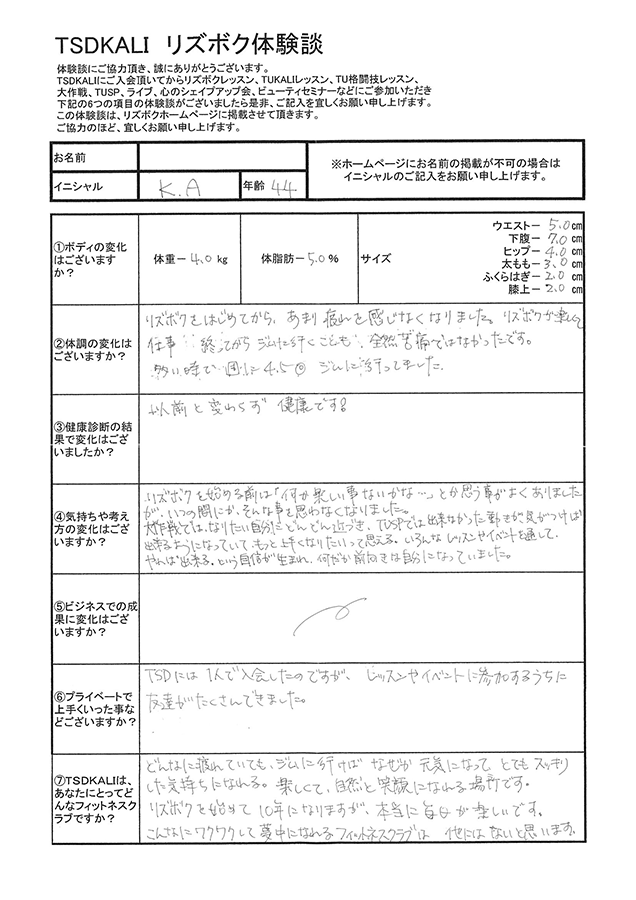 TSDKALI リズボク体験談
体験談にご協力頂き、誠にありがとうございます。
TSDKALIにご入会頂いてからリズボクレッスン、TUKALIレッスン、TU格闘技レッスン、
大作戦、TUSP、ライブ、心のシェイプアップ会、ビューティセミナーなどにご参加いただき
下記の6つの項目の体験談がございましたら是非、ご記入を宜しくお願い申し上げます。
この体験談は、リズボクホームページに掲載させて頂きます。
ご協力のほど、宜しくお願い申し上げます。
お名前
※ホームページにお名前の掲載が不可の場合は
イニシャルのご記入をお願い申し上げます。
イニシャル K.A 年齢 44
①ボディの変化
はございます
か?
体重－4.0kg 体脂肪－5.0% サイズ
ウエスト－5.0cm
下腹－7.0cm
ヒップ－4.0cm
太もも－3.0cm
ふくらはぎ－2.0cm
膝上－2.0cm
②体調の変化は
ございますか?
リズボクをはじめてから、あまり疲れを感じなくなりました。リズボクが楽しくて
仕事 終ってからジムに行くことも、全然苦痛ではなかったです。
多い時で週に4.5回 ジムに行ってました.
③健康診断の結
果で変化はござ
いましたか?
以前と変わらず 健康です!
④気持ちや考え
方の変化はござ
いますか?
リズボクを始める前は「何か楽しい事ないかな…」とか思う事がよくありました
が、いつの間にか、そんな事を思わなくなりました。
大作戦では、なりたい自分にどんどん近づき、TUSPでは出来なかった動きが気がつけば
出来るようになっていて、もっと上手くなりたいって思える。いろんなレッスンやイベントを通して、
やれば出来る。という自信が生まれ、何だか前向きな自分になっていました。
⑤ビジネスでの成
果に変化はござ
いますか?
⑥プライベートで
上手くいった事な
どございますか?
TSDには1人で入会したのですが、レッスンやイベントに参加するうちに
友達がたくさんできました。
⑦TSDKALIは、
あなたにとってど
んなフィットネスク
ラブですか?
どんなに疲れていても、ジムに行けばなぜか元気になって とてもスッキリ
した気持ちになれる。楽しくて、自然と笑顔になれる場所です。
リズボクを始めて10年になりますが、本当に毎日が楽しいです。
こんなにワクワクして夢中になれるフィットネスクラブは 他にはないと思います.